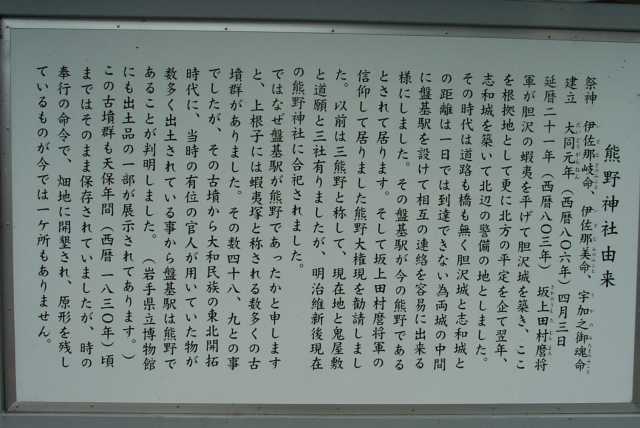 熊野神社由来
祭神 伊佐那岐命、伊佐那美命、宇加之御魂命
建立 大同元年（西暦八〇六年）四月三日
延暦二十一年（西暦八〇三年）坂上田村麿将
軍が胆沢の蝦夷を平げて胆沢城を築き、ここ
を根拠地として更に北方の平定を企て翌年、
志和城を築いて北辺の警備の地としました。
その時代は道路も橋も無く胆沢城と志和城と
の距離は一日では到達できない為両城の中間
に盤基駅を設けて相互の連絡を容易に出来る
様にしました。その盤基駅が今の熊野である
とされて居ります。そして坂上田村麿将軍の
信仰して居りました熊野大権現を勧請しまし
た。以前は三熊野と称して、現在地と鬼屋敷
と道願と三社有りましたが、明治維新後現在
の熊野神社に合祀されました。
ではなぜ盤基駅が熊野であったかと申します
と、上根子には蝦夷塚と称される数多くの古
墳群がありました。その数四十八、九との事
でしたが、その古墳から大和民族の東北開拓
時代に、当時の有位の官人が用いていた物が
数多く出土されている事から盤基駅は熊野で
あることが判明しました。（岩手県立博物館
にも出土品の一部が展示されてあります。）
この古墳群も天保年間（西暦一八三〇年）頃
まではそのまま保存されていましたが、時の
奉行の命令で、畑地に開墾され、原形を残し
ているものが今では一ヶ所もありません。